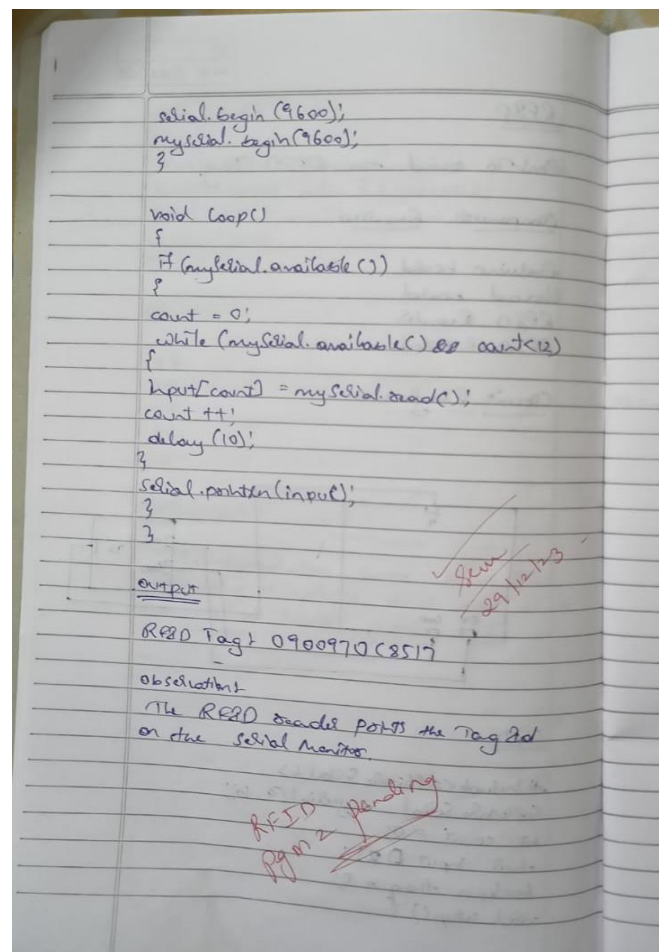 serial.begin (9600);
myserial.begin(9600);
}
void loop()
{
if (mySerial.available ())
{
count = 0;
while (mySerial.available() && count<12)
{
input[count] = mySerial.read();
count ++;
delay (10);
}
serial.println(input);
}
}
output
RFID Tag: 0900970C8517
observation:
The RFID reader prints the Tag Id
on the serial monitor.
29/12/23
RFID
Pgm 2 pending